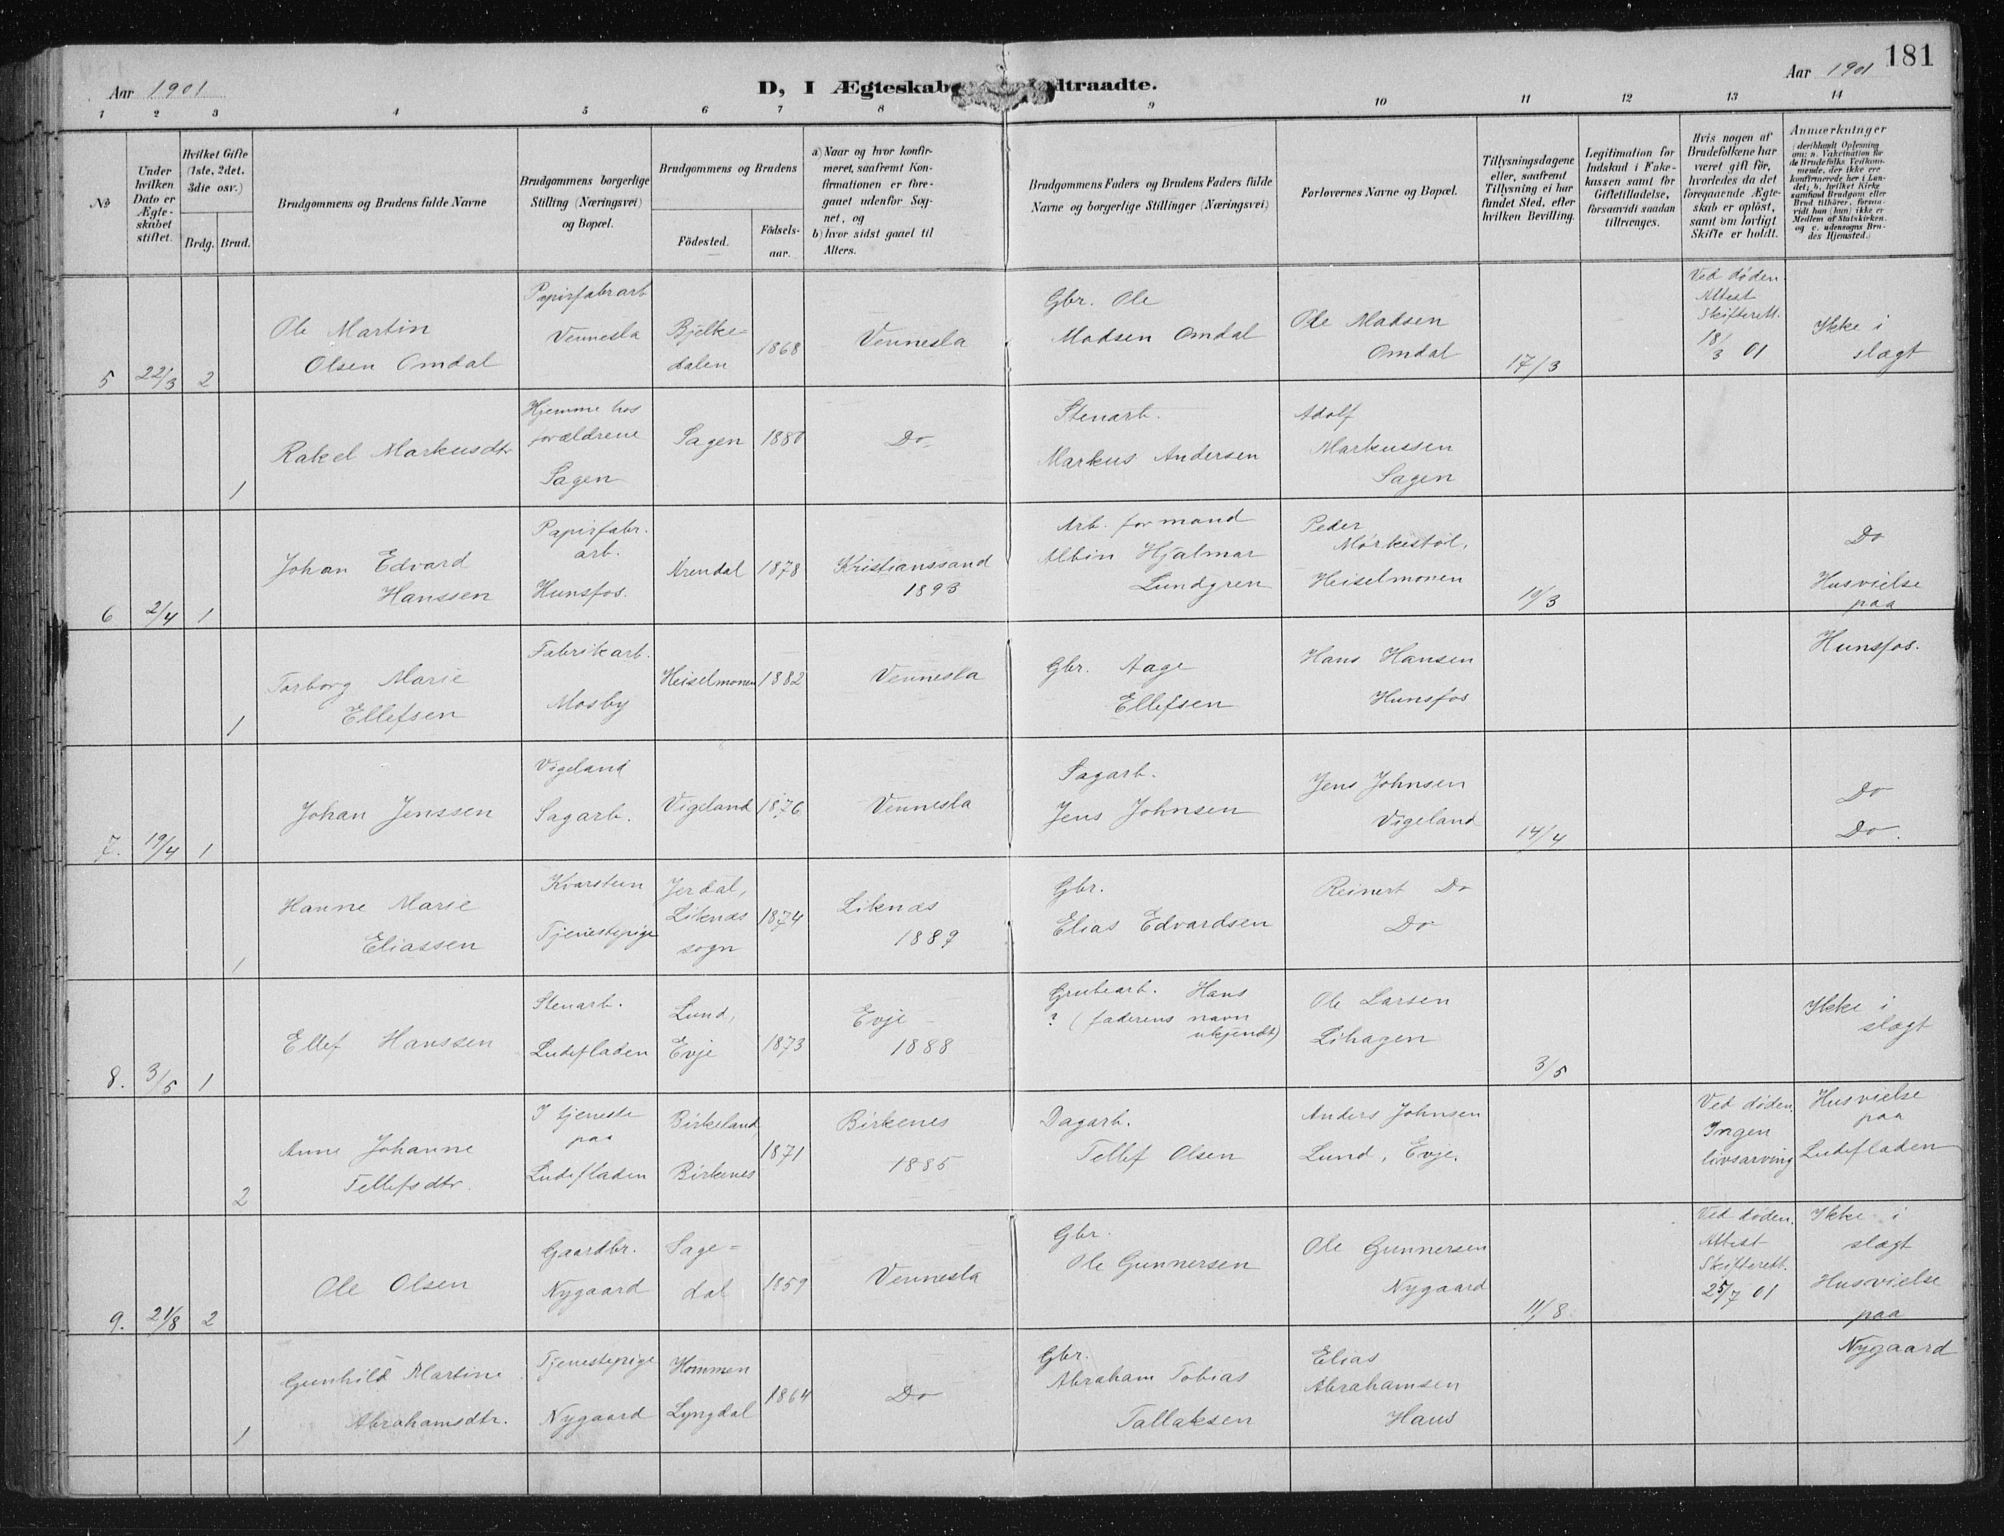 181
Aar 1901
D, I Ægteskab
dtraadte.
Aar 1901
1 2 3 4 5 6 7 8 9 10 11 12 13 14
№
Under
hvilken
Dato er
Ægte-
skabet
stiftet.
Hvilket Gifte
(1ste, 2det,
3die osv.)
Brdg. Brud.
Brudgommens og Brudens fulde Navne
Brudgommens borgerlige
Stilling (Næringsvei)
og Bopæl.
Brudgommens og Brudens
Födested.
Födsels-
aar.
a) Naar og hvor konfir-
meret, saafremt Kon-
firmationen er fore-
gaaet udenfor Sog-
net, og
b) hvor sidst gaaet til
Alters.
Brudgommens Faders og Brudens Faders fulde
Navne og borgerlige Stillinger (Næringsvei)
Forlovernes Navne og Bopæl.
Tillysningsdagene
eller, saafremt
Tillysning ei har
fundet Sted, efter
hvilken Bevilling.
Legitimation for
Indskud i Fak-
kassen samt for
Giftetilladelse,
forsaavidt saadan
tiltrænges.
Hvis nogen af
Brudefolkene har
været gift för,
hvorledes da det
foregaaende Ægte-
skab er oplöst,
samt om lovligt
Skifte er holdt.
Anmærkninger
(deriblandt Oplysning
om: a. Vakcination for
de Brudefolks Vedkom-
mende, der ikke ere
konfirmerede her i Lan-
det; b. hvilket Kirke
samfund Brudgom eller
Brud tilhörer, forsaa-
vidt han (hun) ikke er
Medlem af Statskirken,
og c. udensogns Bru-
des Hjemsted.)
5
22/3
2
Ole Martin
Olsen Omdal
Papirfabrarb
Vennesla
Bjelke-
dalen
1868
Vennesla
Gbr. Ole
Madsen Omdal
Ole Madsen
Omdal
17/3
Ved döden
Attest
Skifterett.
18/3 01
Ikke i
slægt
1
Rakel Markusdtr
Hjemme hos
forældrene
Sagen
Sagen
1880
Do
Stenarb.
Markus Andersen
Adolf
Markussen
Sagen
6
2/4
1
Johan Edvard
Hanssen
Papirfabr.
arb.
Hunsfos.
Arendal
1878
Kristianssand
1893
Arb. formand
Albin Hjalmar
Lundgren
Peder
Mørkestøl,
Heiselmonen
19/3
Do
Husvielse
paa
Hunsfos.
1
Torborg Marie
Ellefsen
Fabrikarb.
Mosby
Heiselmonen
1882
Vennesla
Gbr. Aage
Ellefsen
Hans Hansen
Hunsfos
7.
19/4
1
Johan Jenssen
Vigeland
Sagarb.
Vigeland
1876
Vennesla
Sagarb.
Jens Johnsen
Jens Johnsen
Vigeland
14/4
Do
Do.
1
Hanne Marie
Eliassen
Kvarstein
Tjenestepige
Jerdal,
Liknæs
sogn
1874
Liknæs
1889
Gbr.
Elias Edvardsen
Reinert Do
Do
8.
3/5
1
Ellef Hanssen
Stenarb.
Ludefladen
Lund,
Evje
1873
Evje
1888
Grubearb. Hans
? (faderens navn
ukjendt)
Ole Larsen
Lihagen
3/5
Ikke i
slægt
2
Anne Johanne
Tellefsdtr.
I tjeneste
paa
Ludefladen
Birkeland,
Birkenes
1871
Birkenes
1885
Dagarb.
Tellef Olsen
Anders Johnsen
Lund, Evje.
Ved döden,
Ingen
livsarving
Husvielse
paa
Ludefladen
9.
21/8
2
Ole Olsen
Gaardbr.
Nygaard
Sage-
dal
1859
Vennesla
Gbr.
Ole Gunnersen
Ole Gunnersen
Nygaard
11/8.
Ved döden.
Attest
Skifterett.
25/7 01
Ikke i
slægt
Husvielse
paa
Nygaard
1
Gunhild Martine
Abrahamsdtr.
Tjenestepige
Nygaard
Hommen
Lyngdal
1864
Do
Gbr.
Abraham Tobias
Tallaksen
Elias
Abrahamsen
Haus